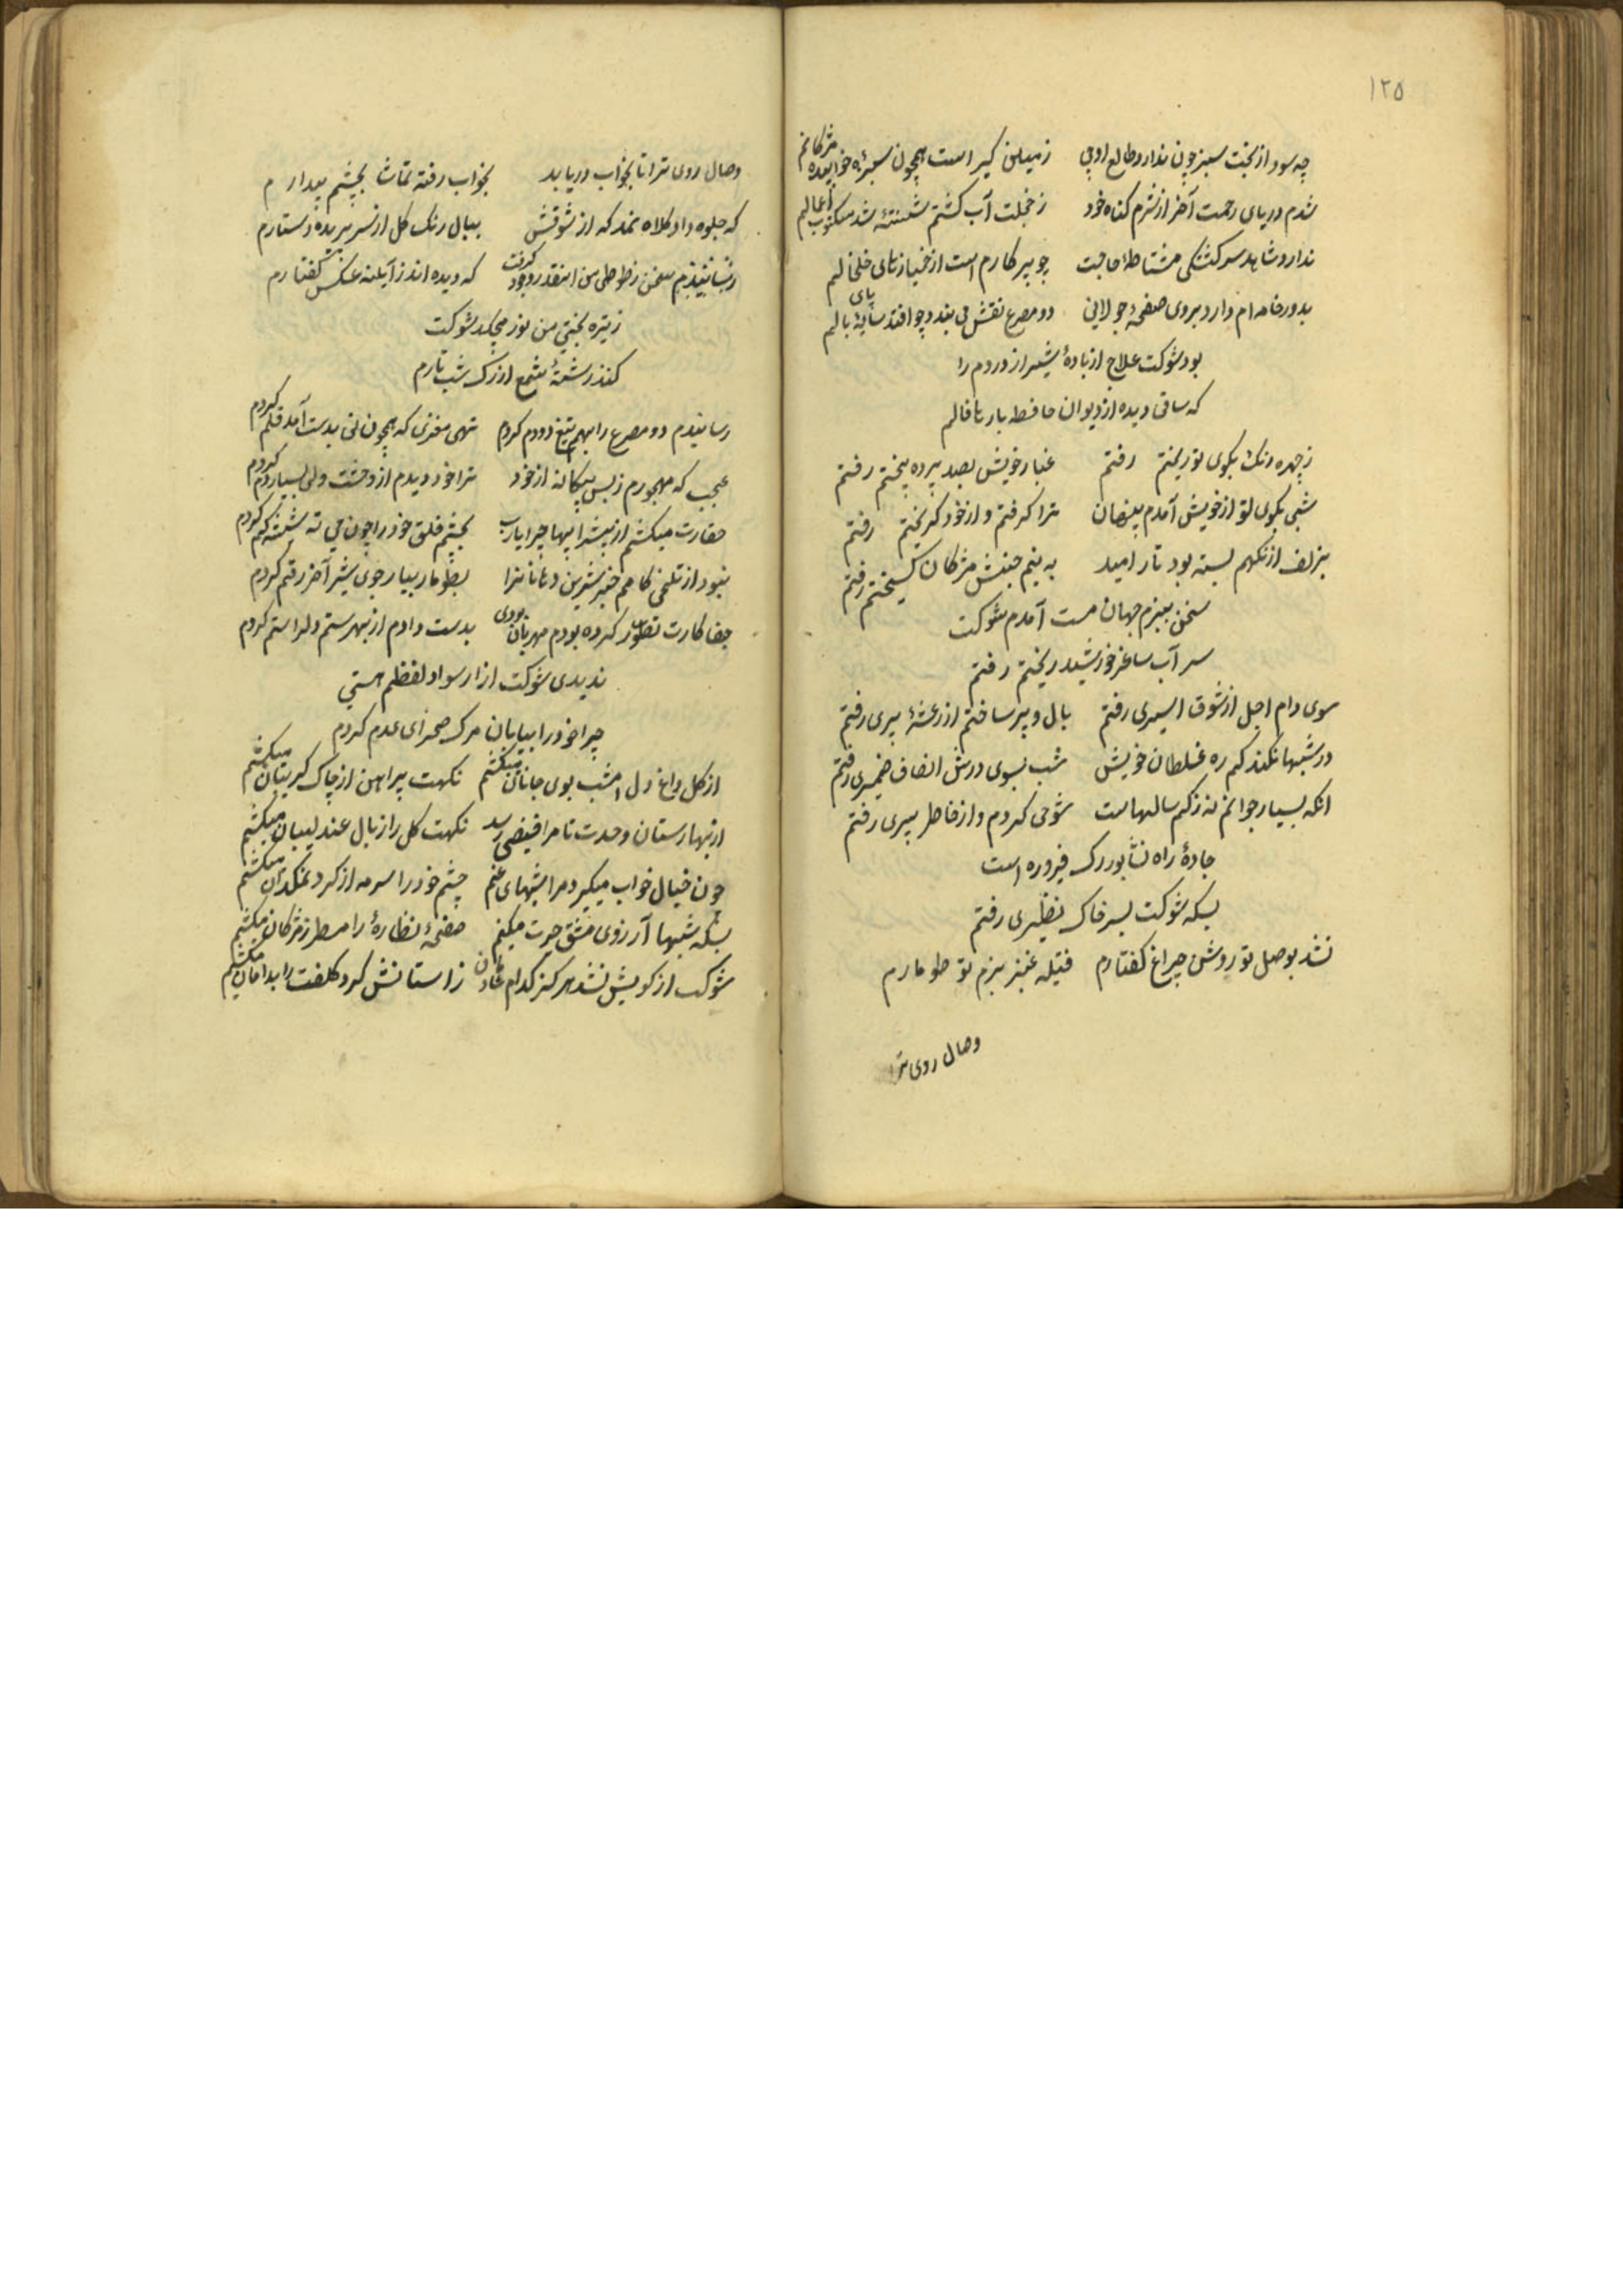 ۱۲۵
چه سود از بخت سبز چون ندارد طالع اوجی زمین گیر است همچون سبزه خوابیده مژگانم
شدم دریای رحمت آخر از شرم گناه خود ز خجلت آب گشتم شسته شد مکتوب اعمالم
ندارد شاهد سرکشتکی مشاطهٔ حاجت چو پرکارم است از خمیازهای خلخالم
بدور خامه ام دارد بروی صفحهٔ جولانی دو مصرع نقش می بندد چو افتد سایهٔ بالم
پای
بود شوکت علاج از بادهٔ شیراز دردم را
که ساقی دیده از دیوان حافظ بارها فالم
ز چهره رنک بکوی تو ریختم رفتم غبار خویش بصد پرده بیختم رفتم
شبی بکوی تو از خویش آمدم پنهان ترا کرفتم و از خود کریختم رفتم
بزلف از نکهم بسته بود تار امید به نیم جنبش مژکان کسیختم رفتم
سخن ببزم جهان مست آمدم شوکت
سر آب ساغر خورشید ریختم رفتم
سوی دام اجل از شوق اسیری رفتم بال و پر ساختم از رعشهٔ پیری رفتم
در شبها نکند کم ره غلطان خویش شب بسوی درش انصاف ضمیری رفتم
انکه بسیار جوانم نه ز کم سالیهاست شوخی کردم و از خاطر پیری رفتم
جادهٔ راه نشابور رک فیروزه است
بسکه شوکت بسر خاک نظیری رفتم
نشد بوصل تو روشن چراغ کفتارم فتیله عنبر بزم تو طومارم
وصال روی ترا
وصال روی ترا تا بخواب دریابد بخواب رفته تماشا بچشم بیدارم
که جلوه داد کلاه نمد که از شوقش ببال رنک کل از سر پریده دستارم
رسانیدم سخن ز طوطی من اینقدر وجود گرفت که دیده اند ز آیینه عکس کفتارم
ز تیره بختی من نور میچکد شوکت
کنند رشتهٔ شمع از رک شب تارم
رسانیدم دو مصرع را بهم تیغ دودم کردم تهی مغزی که همچون نی بدست آمد قلم کردم
عجب که مهجورم ز بس بیکانه از خود ترا خود دیدم از وحشت ولی بسیار رم کردم
حقارت میکشم از پیشدانیها چرا یارب بچشم خلق خود را چون می ته شیشه کم کردم
نبود از تلخی کامم خبر شیرین دهانان را بطومار بیار جوی شیر آخر رقم کردم
جفاکارت تصور کرده بودم مهربان بودی بدست دادم از بهر ستم دلرا ستم کردم
ندیدی شوکت ازار سواد لفظم هستی
چرا خود را بیابان مرک صحرای عدم کردم
از کل داغ دل امشب بوی جانان میکشم نکهت پیراهن از چاک کریبان میکشم
از بهارستان وحدت تا مرا فیضی رسد نکهت کل را ز بال عندلیبان میکشم
چون خیال خواب میکیرد مرا شبهای غم چشم خود را سرمه از کرد نمکدان میکشم
بسکه شبها آرزوی مشق حیرت میکنم صفحهٔ نظاره را مسطر ز مژکان میکشم
شوکت از کویش نشد هرکز کدام شادمان ز استانش کرد کلفت را بدامان میکشم